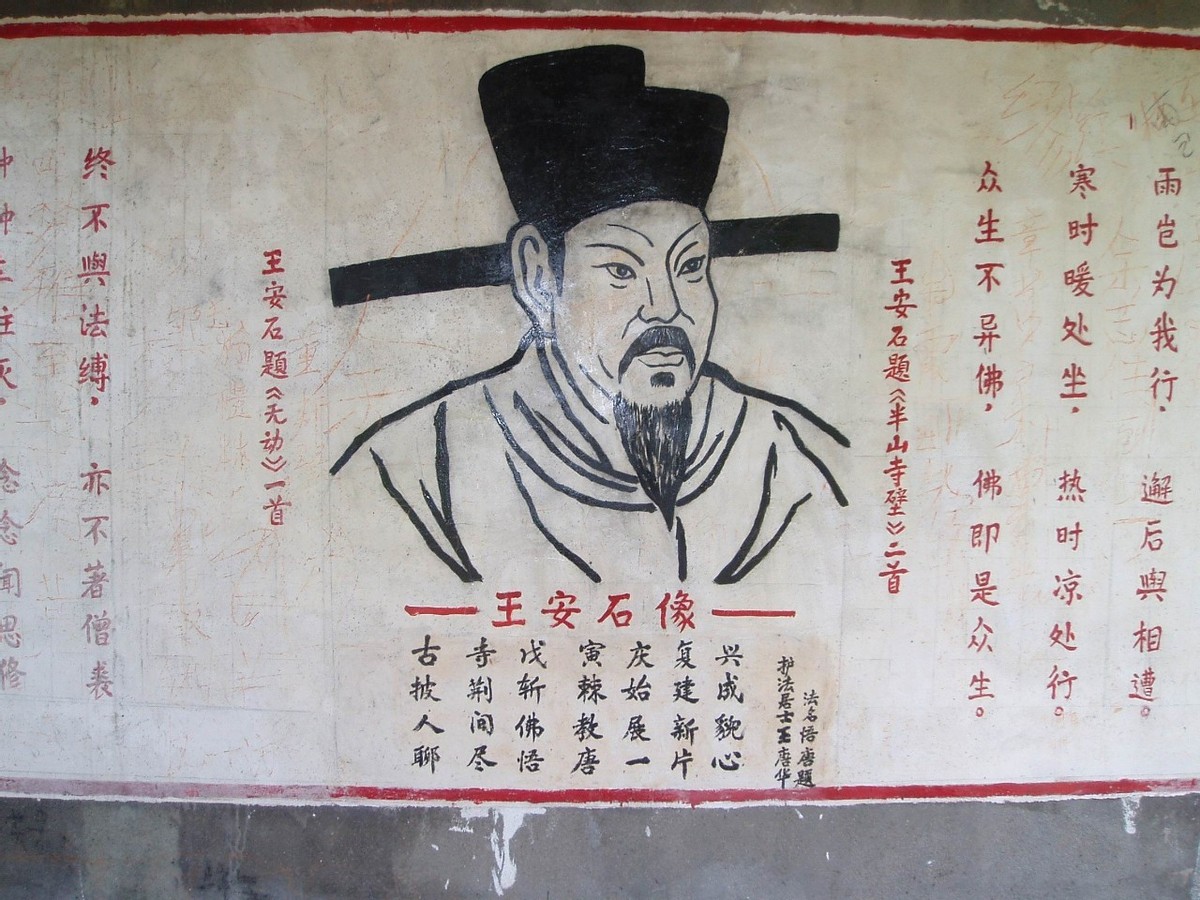 雨岂为我行，邂后與相遭。
寒时暖处坐，热时凉处行。
众生不异佛，佛即是众生。
王安石題《半山寺壁》二首
王安石像
古寺戊寅庆复兴
披荆斩棘始建成
人间佛教展新貌
聊尽悟唐一片心
护法居士王唐华
法名悟唐题
王安石題《无动》一首
终不與法缚，亦不著僧裘
念念闻思修